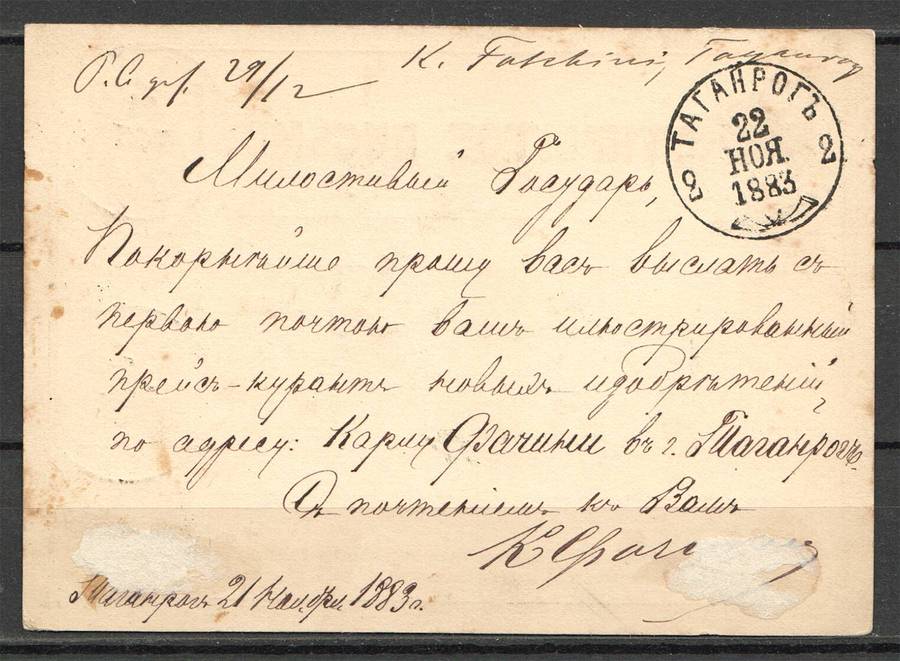 29/12
K. Fatchini, Taganrog
ТАГАНРОГЪ
22
НОЯ.
1883
2 2
Милостивый Государь,
Покорнѣйше прошу васъ выслать съ
первою почтою вашъ илюстрированный
прейсъ-курантъ новыхъ изобрѣтений
по адресу: Карлу Фачини въ г. Таганрогъ.
Съ почтениемъ къ Вамъ
К Фач
Таганрогъ 21 Ноября 1883 г.